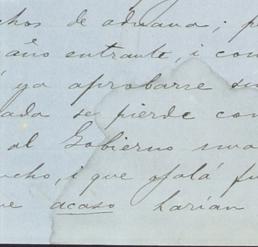 chos de aduana; p
año entrante, i con
ya aprobarse su
ada se pierde con
al Gobierno una
ucho, i que ojalá fu
ue acaso harían